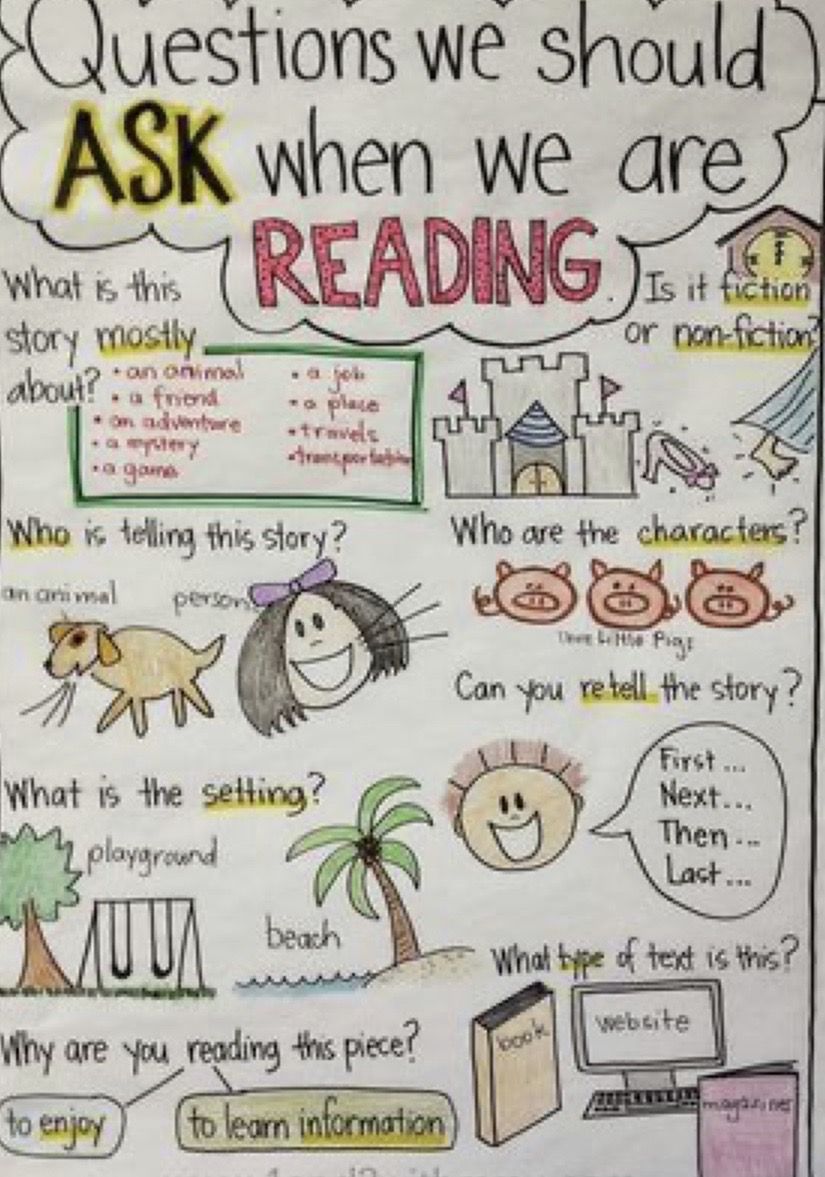 Questions we should
ASK when we are
READING.
What is this
story mostly
about?
• an animal
• a friend
• an adventure
• a mystery
• a game
• a job
• a place
• travels
• transportation
Is it fiction
or non-fiction?
Who is telling this story?
an animal
person
Who are the characters?
Three Little Pigs
Can you retell the story?
First...
Next...
Then...
Last...
What is the setting?
playground
beach
What type of text is this?
book
website
magazines
Why are you reading this piece?
to enjoy
to learn information